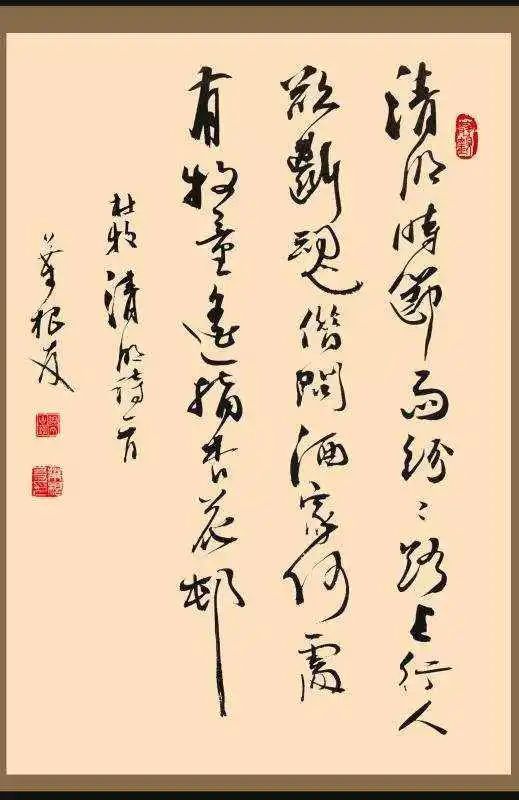 清明時節雨紛々路上行人
欲斷魂借問酒家何處
有牧童遙指杏花邨
杜牧清明詩一首
葉根友